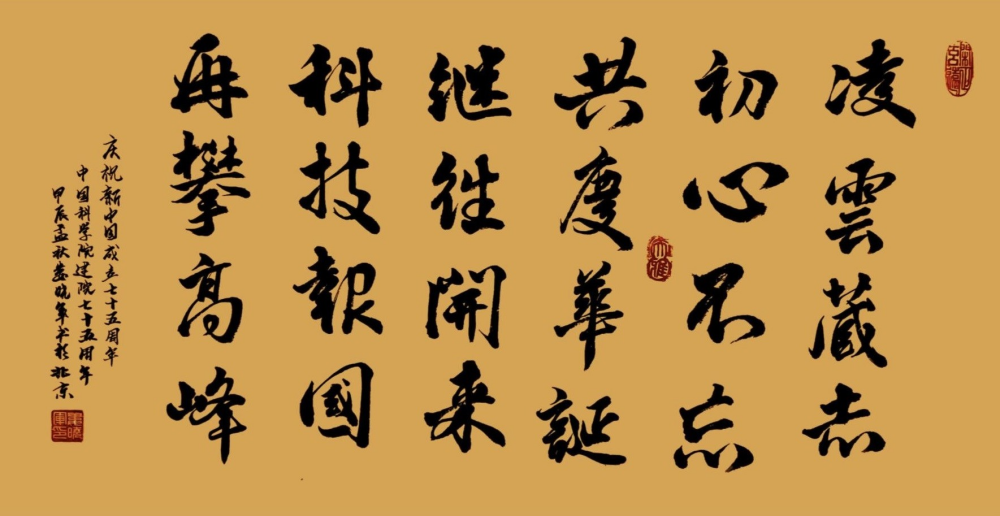 凌雲藏志
初心不忘
共度華誕
继往開来
科技報國
再攀高峰
庆祝新中国成立七十五周年
中国科学院建院七十五周年
甲辰孟秋晓军书於北京